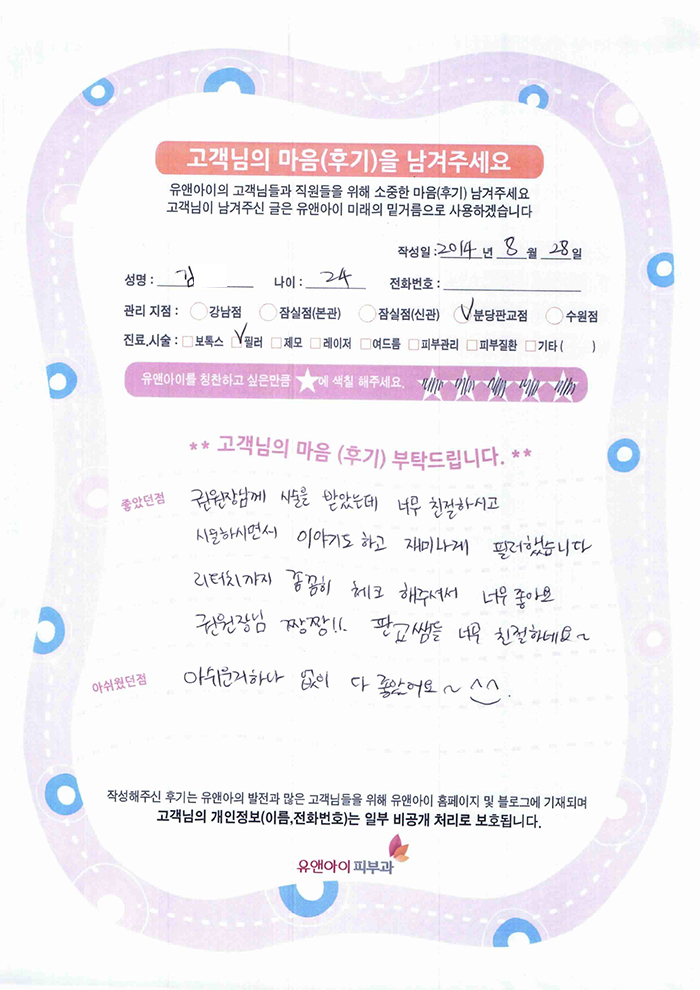 고객님의 마음(후기)을 남겨주세요
유앤아이의 고객님들과 직원들을 위해 소중한 마음(후기) 남겨주세요
고객님이 남겨주신 글은 유앤아이 미래의 밑거름으로 사용하겠습니다
작성일 : 2014 년 8 월 28 일
성명 : 김 나이 : 24 전화번호 :
관리 지점 : 강남점 잠실점(본관) 잠실점(신관) 분당판교점 수원점
진료,시술 : 보톡스 필러 제모 레이저 여드름 피부관리 피부질환 기타 ( )
유앤아이를 칭찬하고 싶은만큼 ★에 색칠 해주세요.
** 고객님의 마음 (후기) 부탁드립니다. **
좋았던점 권원장님께 시술을 받았는데 너무 친절하시고
시술하시면서 이야기도 하고 재미나게 필러했습니다
리터치까지 꼼꼼히 체크 해주셔서 너무 좋아요
권원장님 짱짱!! 판교쌤들 너무 친절하네요~
아쉬웠던점 아쉬운거하나 없이 다 좋았어요~ ^^.
작성해주신 후기는 유앤아의 발전과 많은 고객님들을 위해 유앤아이 홈페이지 및 블로그에 기재되며
고객님의 개인정보(이름,전화번호)는 일부 비공개 처리로 보호됩니다.
유앤아이 피부과